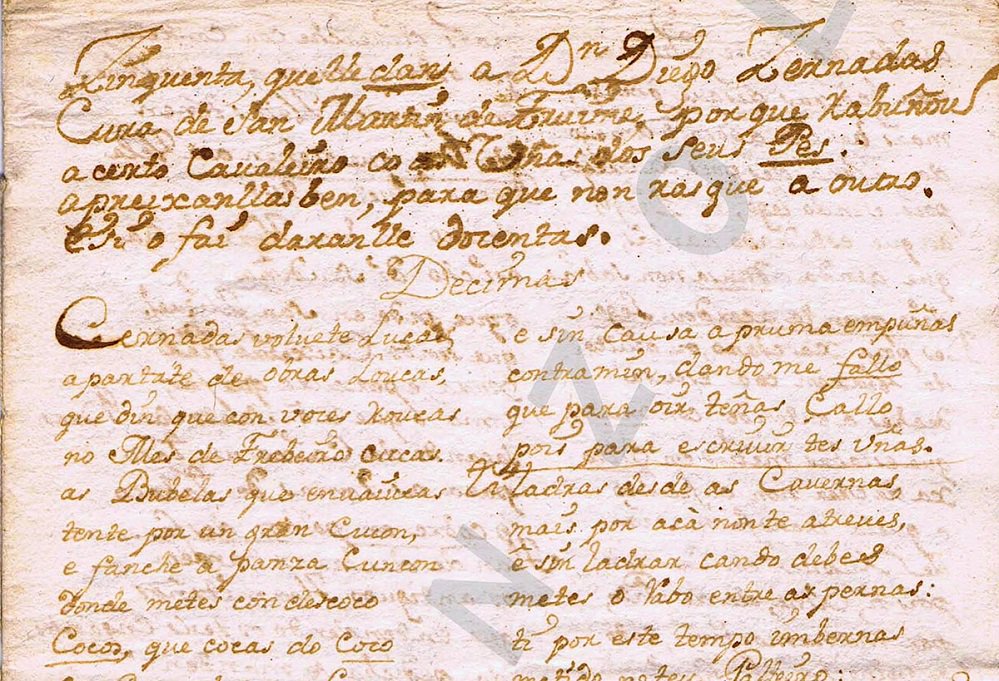 Zinquenta, que lle dan a Dn Diego Zernadas
Cura de San Martin de Fruime, porque rabuñou
a certo Cavaleiro co as Uñas dos seus Pes.
apreixanllas ben, para que non rasque a outro.
e si o fai daranlle docientas.
Decimas
Cernadas volvete
apartate de obras Loucas,
que din que con voces roucas
no Mes de Febreiro cucas.
as Bubelas que
tente por un gran Cucon,
e fanche a panza Cuncon
donde metes con descoco
Cocos, que cocas do Coco
e sin causa a pruma empuñas
contra min, dando me fallo
que para oir teñas Callo
pois para escrivir tes uñas.
Ti ladras desde as Cavernas,
mais por acà non te atreves,
è sin ladrar cando debes
metes o Rabo entre as pernas:
ti por este tempo imbernas
metido no teu Palleiro: